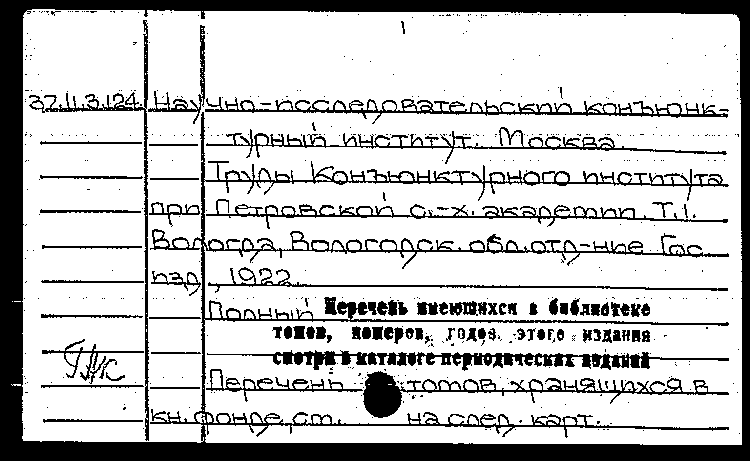 37.II.3.124. Научно-исследовательский конъюнк-
турный институт. Москва.
Труды Конъюнктурного института
при Петровской с.-х. академии. Т.1.
Вологда, Вологодск. обл. отд-ние Гос.
изд., 1922.
Полный Перечень имеющихся в библиотеке
томов, номеров, годов этого издания
смотри в каталоге периодических изданий
Перечень томов, хранящихся в
кн. фонде, см. на след. карт.